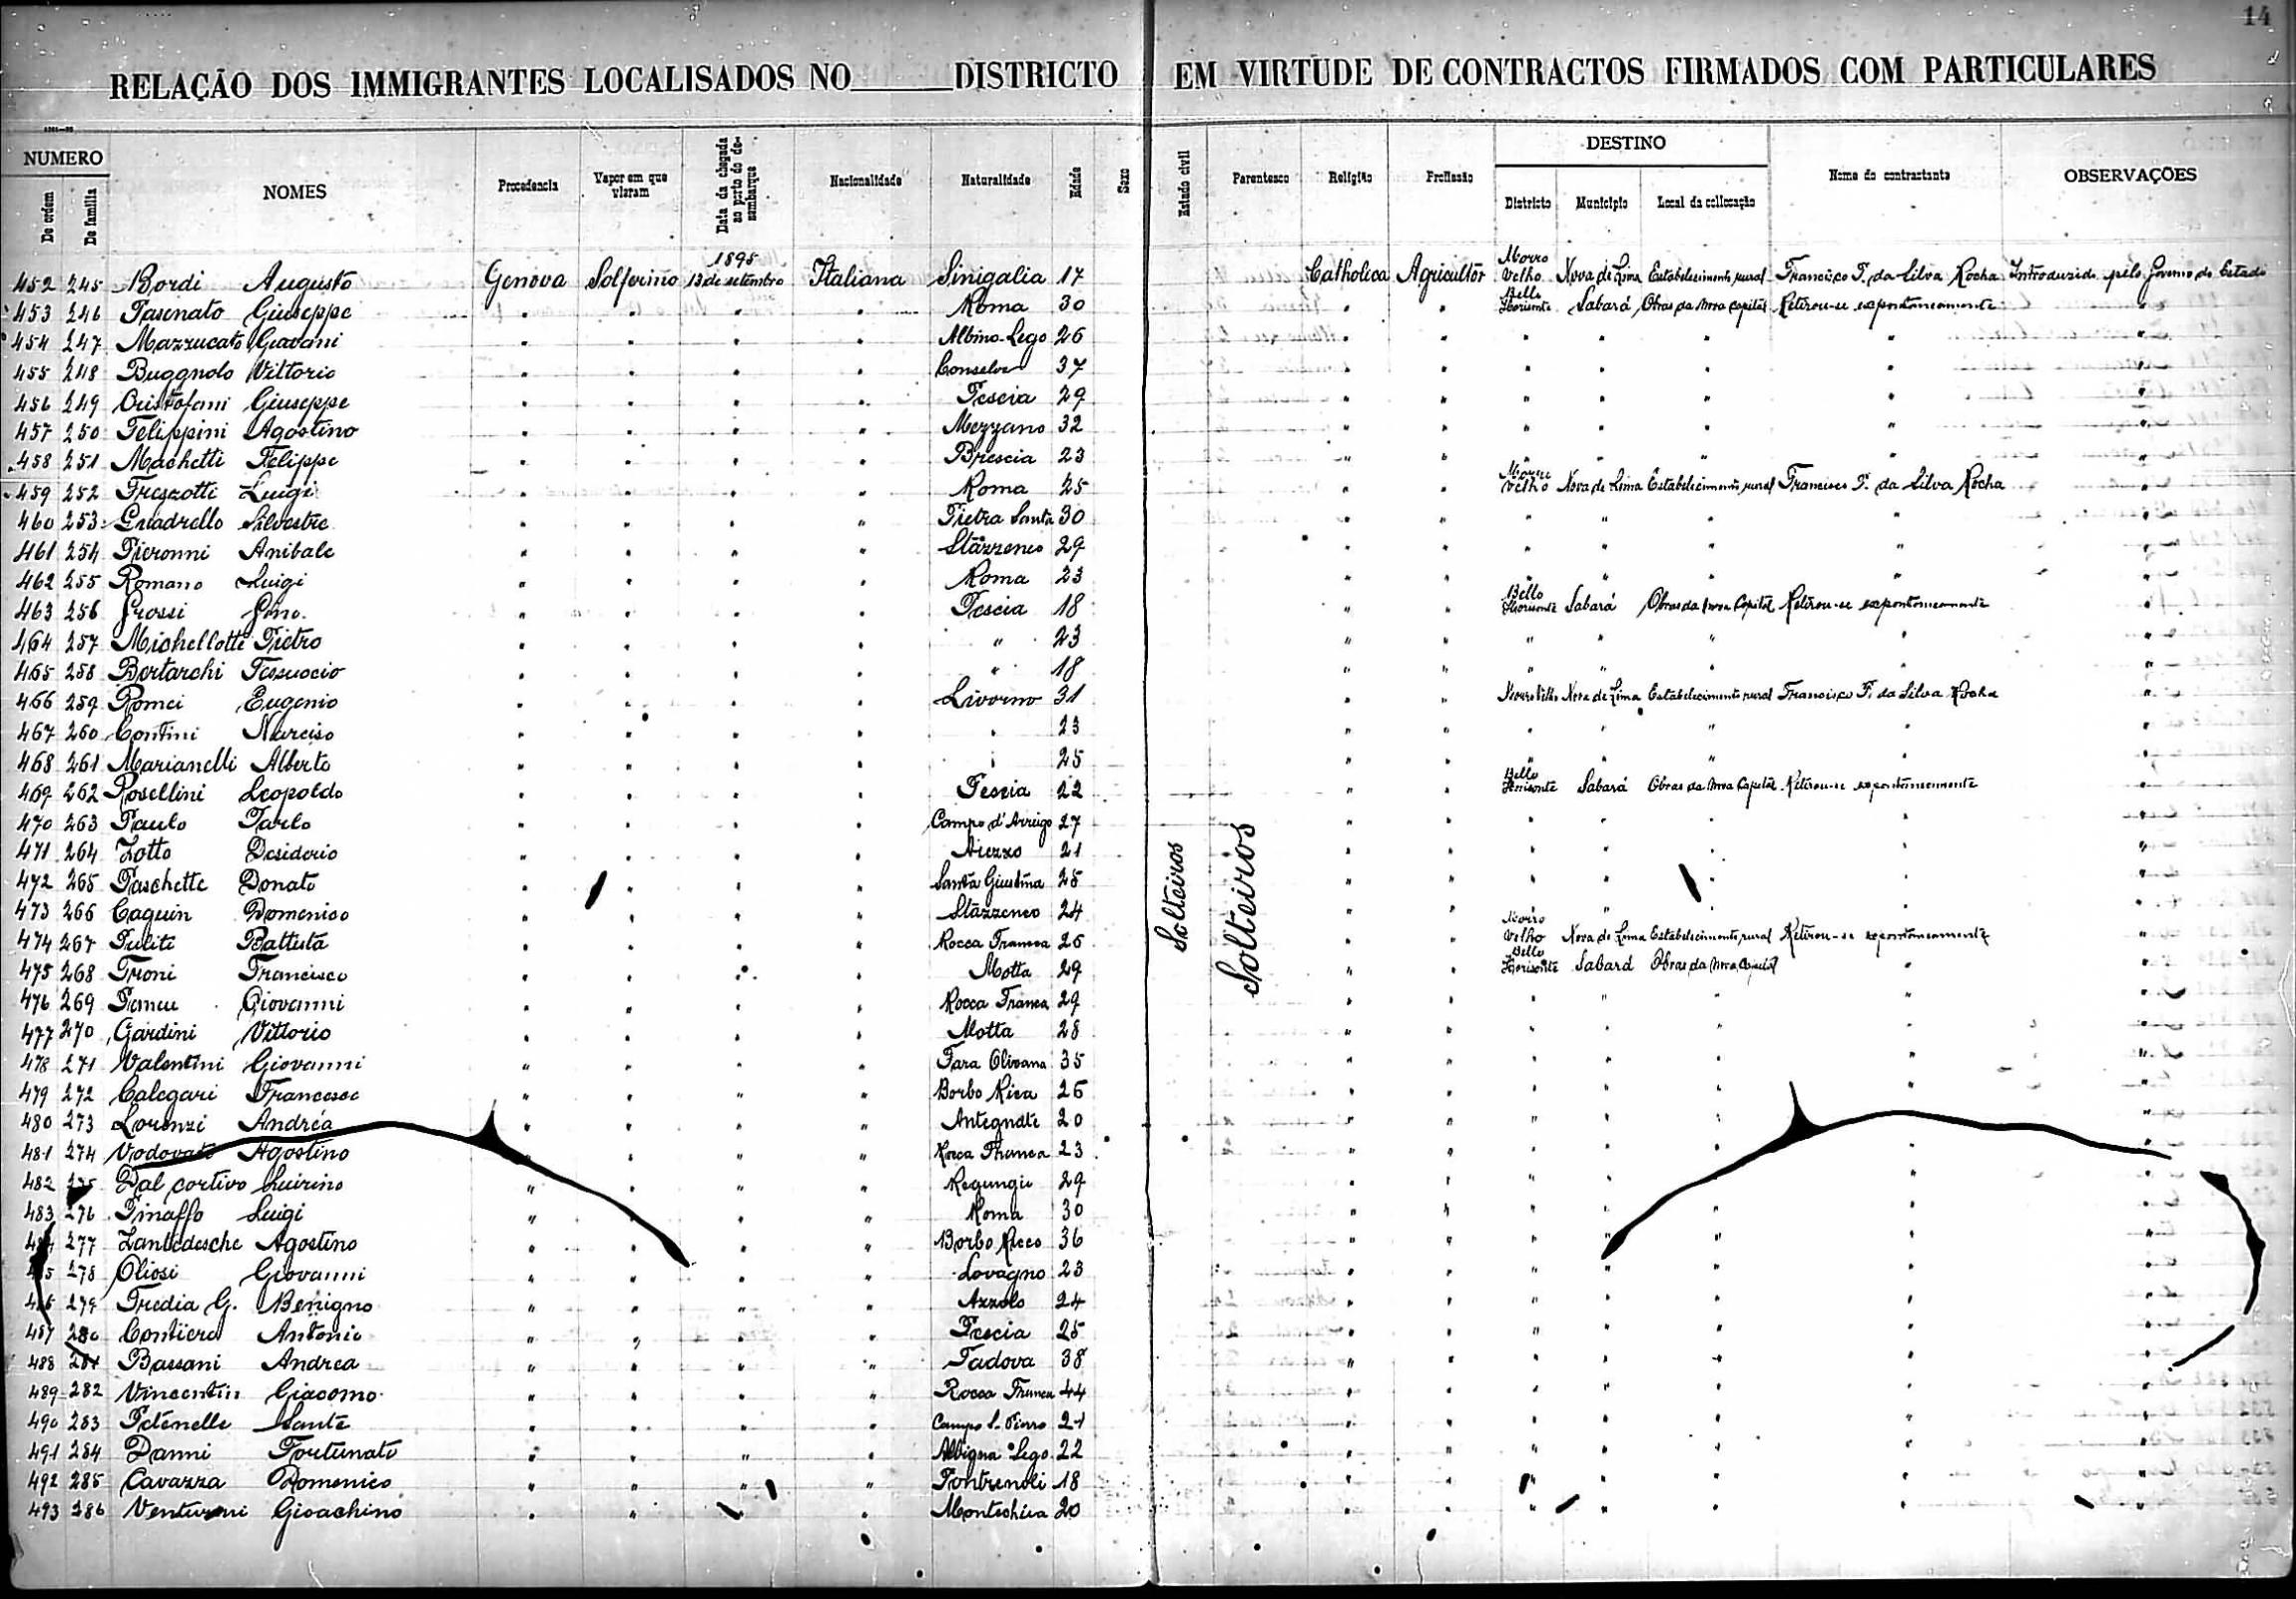 14
RELAÇÃO DOS IMMIGRANTES LOCALISADOS NO DISTRICTO EM VIRTUDE DE CONTRACTOS FIRMADOS COM PARTICULARES
NUMERO
De ordem De familia NOMES Procedencia Vapor em que vieram Data da chegada ao porto do desembarque Nacionalidade Naturalidade Edade Sexo Estado civil Parentesco Religião Profissão DESTINO Districto Municipio Local da collocação Nome do contractante OBSERVAÇÕES
452 245 Bordi Augusto Genova Solferino 1895 13 de setembro Italiana Sinigalia 17 Catholica Agricultor Morro Velho Nova de Lima Estabelecimento rural Francisco F. da Silva Rocha Introduzido pelo Governo do Estado
453 246 Pasenato Giuseppe " " " " Roma 30 " " Bello Horisonte Sabará Obras da Nova Capital Retirou-se espontaneamente "
454 247 Mazzucato Giavani " " " " Albino-Lego 26 " " " " " " "
455 248 Buggnolo Vittorio " " " " Conselve 37 " " " " " " "
456 249 Cristofani Giuseppe " " " " Pescia 29 " " " " " " "
457 250 Felippini Agostino " " " " Mezzano 32 " " " " " " "
458 251 Machetti Felippe " " " " Brescia 23 " " " " " "
459 252 Frezzotti Luigi " " " " Roma 25 " " Morro Velho Nova de Lima Estabelecimento rural Francisco F. da Silva Rocha "
460 253 Quadrello Silvestre " " " " Pietra Santa 30 " " " " " " "
461 254 Pieronni Anibale " " " " Stazzeno 29 " " " " " " "
462 255 Romano Luigi " " " " Roma 23 " " " " " " "
463 256 Grossi Gino " " " " Pescia 18 " " Bello Horisonte Sabará Obras da Nova Capital Retirou-se espontaneamente "
464 257 Michellotte Pietro " " " " " 23 " " " " " " "
465 258 Bertarchi Ferruccio " " " " " 18 " " " " " " "
466 259 Romei Eugenio " " " " Livorno 31 " " Morro Velho Nova de Lima Estabelecimento rural Francisco F. da Silva Rocha "
467 260 Contini Narciso " " " " " 23 " " " " " " "
468 261 Marianelli Alberto " " " " " 25 " " " " " " "
469 262 Rosellini Leopoldo " " " " Pescia 22 " " Bello Horisonte Sabará Obras da Nova Capital Retirou-se espontaneamente "
470 263 Paulo Parlo " " " " Campo d'Arrigo 27 " " " " " " "
471 264 Zotto Desiderio " " " " Arezzo 21 " " " " " " "
472 265 Paschette Donato " " " " Santa Giustina 25 " " " " " " "
473 266 Caquin Domenico " " " " Stazzeno 24 " " " " " " "
474 267 Puliti Battista " " " " Rocca Franca 26 " " Morro Velho Nova de Lima Estabelecimento rural Retirou-se espontaneamente "
475 268 Troni Francisco " " " " Motta 29 " " Bello Horisonte Sabará Obras da Nova Capital " "
476 269 Giovanni " " " " Rocca Franca 29 " " " " " " "
477 270 Gardini Vittorio " " " " Motta 28 " " " " " " "
478 271 Valentini Giovanni " " " " Fara Olivana 35 " " " " " " "
479 272 Calegari Francesco " " " " Borbo Rica 26 " " " " " " "
480 273 Lorenzi Andréa " " " " Antegnate 20 " " " " " " "
481 274 Vodovato Agostino " " " " Rocca Franca 23 " " " " " " "
482 275 Dal cortivo Luirino " " " " 29 " " " " " " "
483 276 Pinaffo Luigi " " " " Roma 30 " " " " " " "
484 277 Zantedesche Agostino " " " " Borbo Ricco 36 " " " " " " "
485 278 Oliosi Giovanni " " " " Lovagno 23 " " " " " " "
486 279 Fredia G. Benigno " " " " Azzolo 24 " " " " " " "
487 280 Contiero Antonio " " " " Pescia 25 " " " " " " "
488 281 Bassani Andrea " " " " Padova 38 " " " " " " "
489 282 Vincentin Giacomo " " " " Rocca Franca 44 " " " " " " "
490 283 Petenelle Sante " " " " Campo S. Pierro 21 " " " " " " "
491 284 Danni Fortunato " " " " Albigna Lego 22 " " " " " " "
492 285 Cavazza Domenico " " " " Pontremoli 18 " " " " " " "
493 286 Venturini Gioachino " " " " 20 " " " " " " "
Solteiros
Solteirios